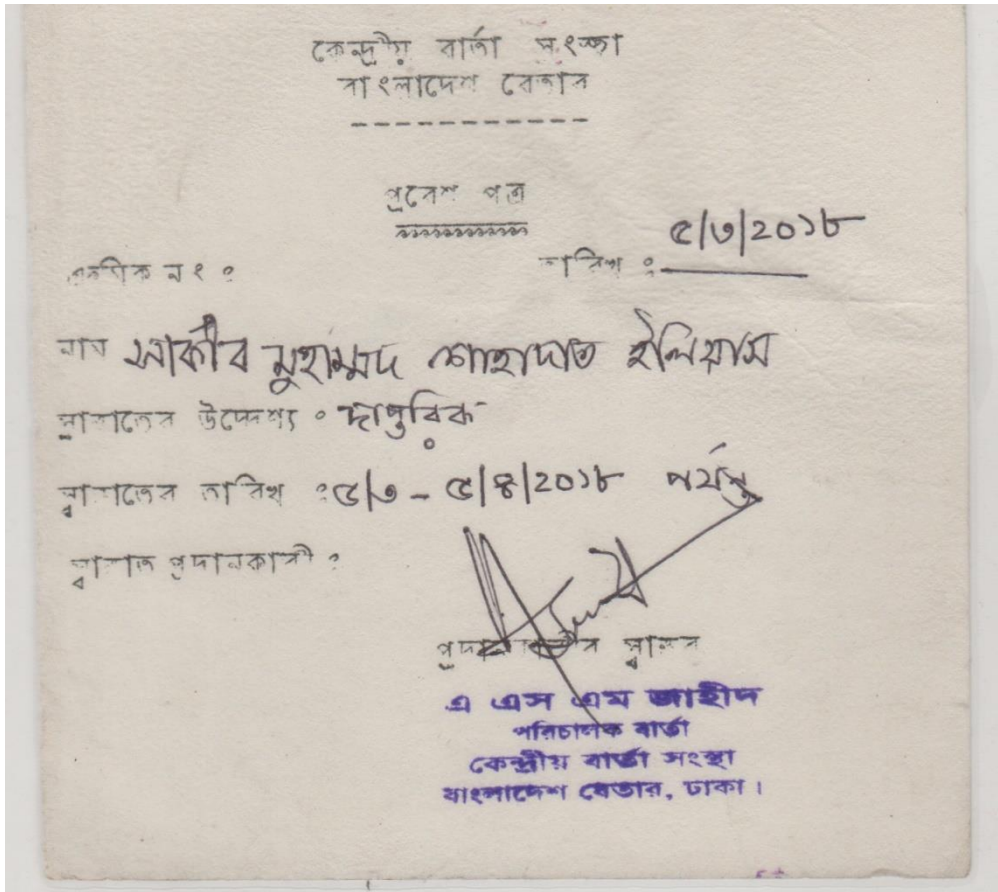 কেন্দ্রীয় বার্তা সংস্থা
বাংলাদেশ বেতার
প্রবেশ পত্র
ক্রমিক নং :
তারিখ : ৫/৩/২০১৮
নাম সাকীব মুহাম্মদ শাহাদাত ইলিয়াস
সাক্ষাতের উদ্দেশ্য : দাপ্তরিক
সাক্ষাতের তারিখ : ৫/৩ - ৫/৪/২০১৮ পর্যন্ত
সাক্ষাত প্রদানকারী :
প্রদানকারীর স্বাক্ষর
এ এস এম জাহীদ
পরিচালক বার্তা
কেন্দ্রীয় বার্তা সংস্থা
বাংলাদেশ বেতার, ঢাকা।